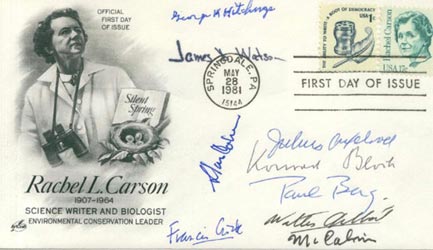 OFFICIAL
FIRST DAY
OF ISSUE
Silent
Spring
Rachel L. Carson
1907-1964
SCIENCE WRITER AND BIOLOGIST
ENVIRONMENTAL CONSERVATION LEADER
George H Hitchings
James D Watson
SPRINGDALE, PA
MAY
28
1981
15144
A ROOT OF DEMOCRACY
THE ABILITY TO WRITE
USA 1c
Rachel Carson
USA 17c
FIRST DAY OF ISSUE
Julius Axelrod
Konrad Bloch
Paul Berg
Walter Gilbert
M Calvin
Francis Crick